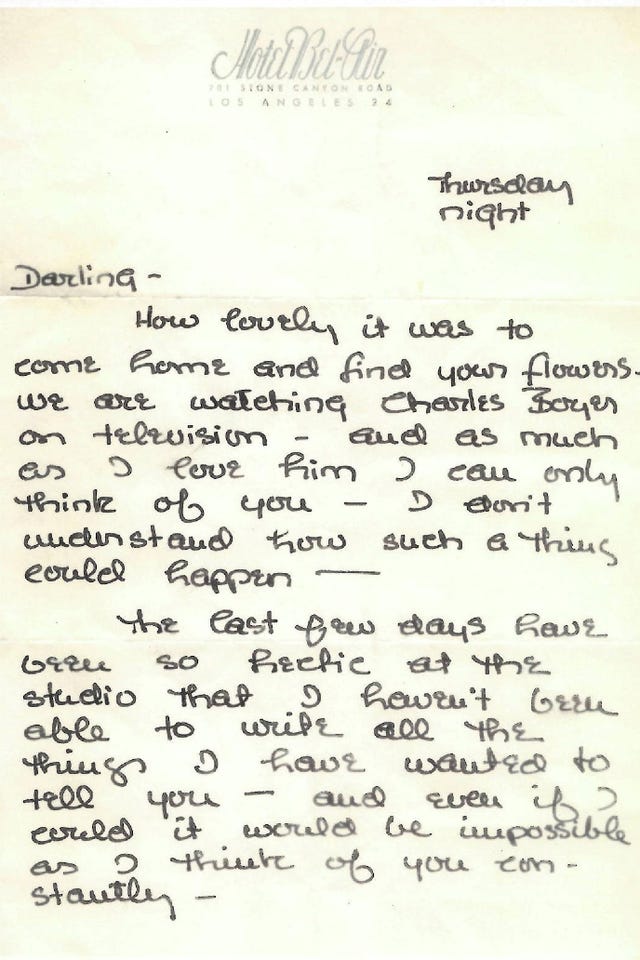 Hotel Bel-Air
701 STONE CANYON ROAD
LOS ANGELES 24
Thursday
night
Darling -
How lovely it was to
come home and find your flowers.
We are watching Charles Boyer
on television - and as much
as I love him I can only
think of you - I don't
understand how such a thing
could happen —
The last few days have
been so hectic at the
studio that I haven't been
able to write all the
things I have wanted to
tell you — and even if I
could it would be impossible
as I think of you con-
stantly -